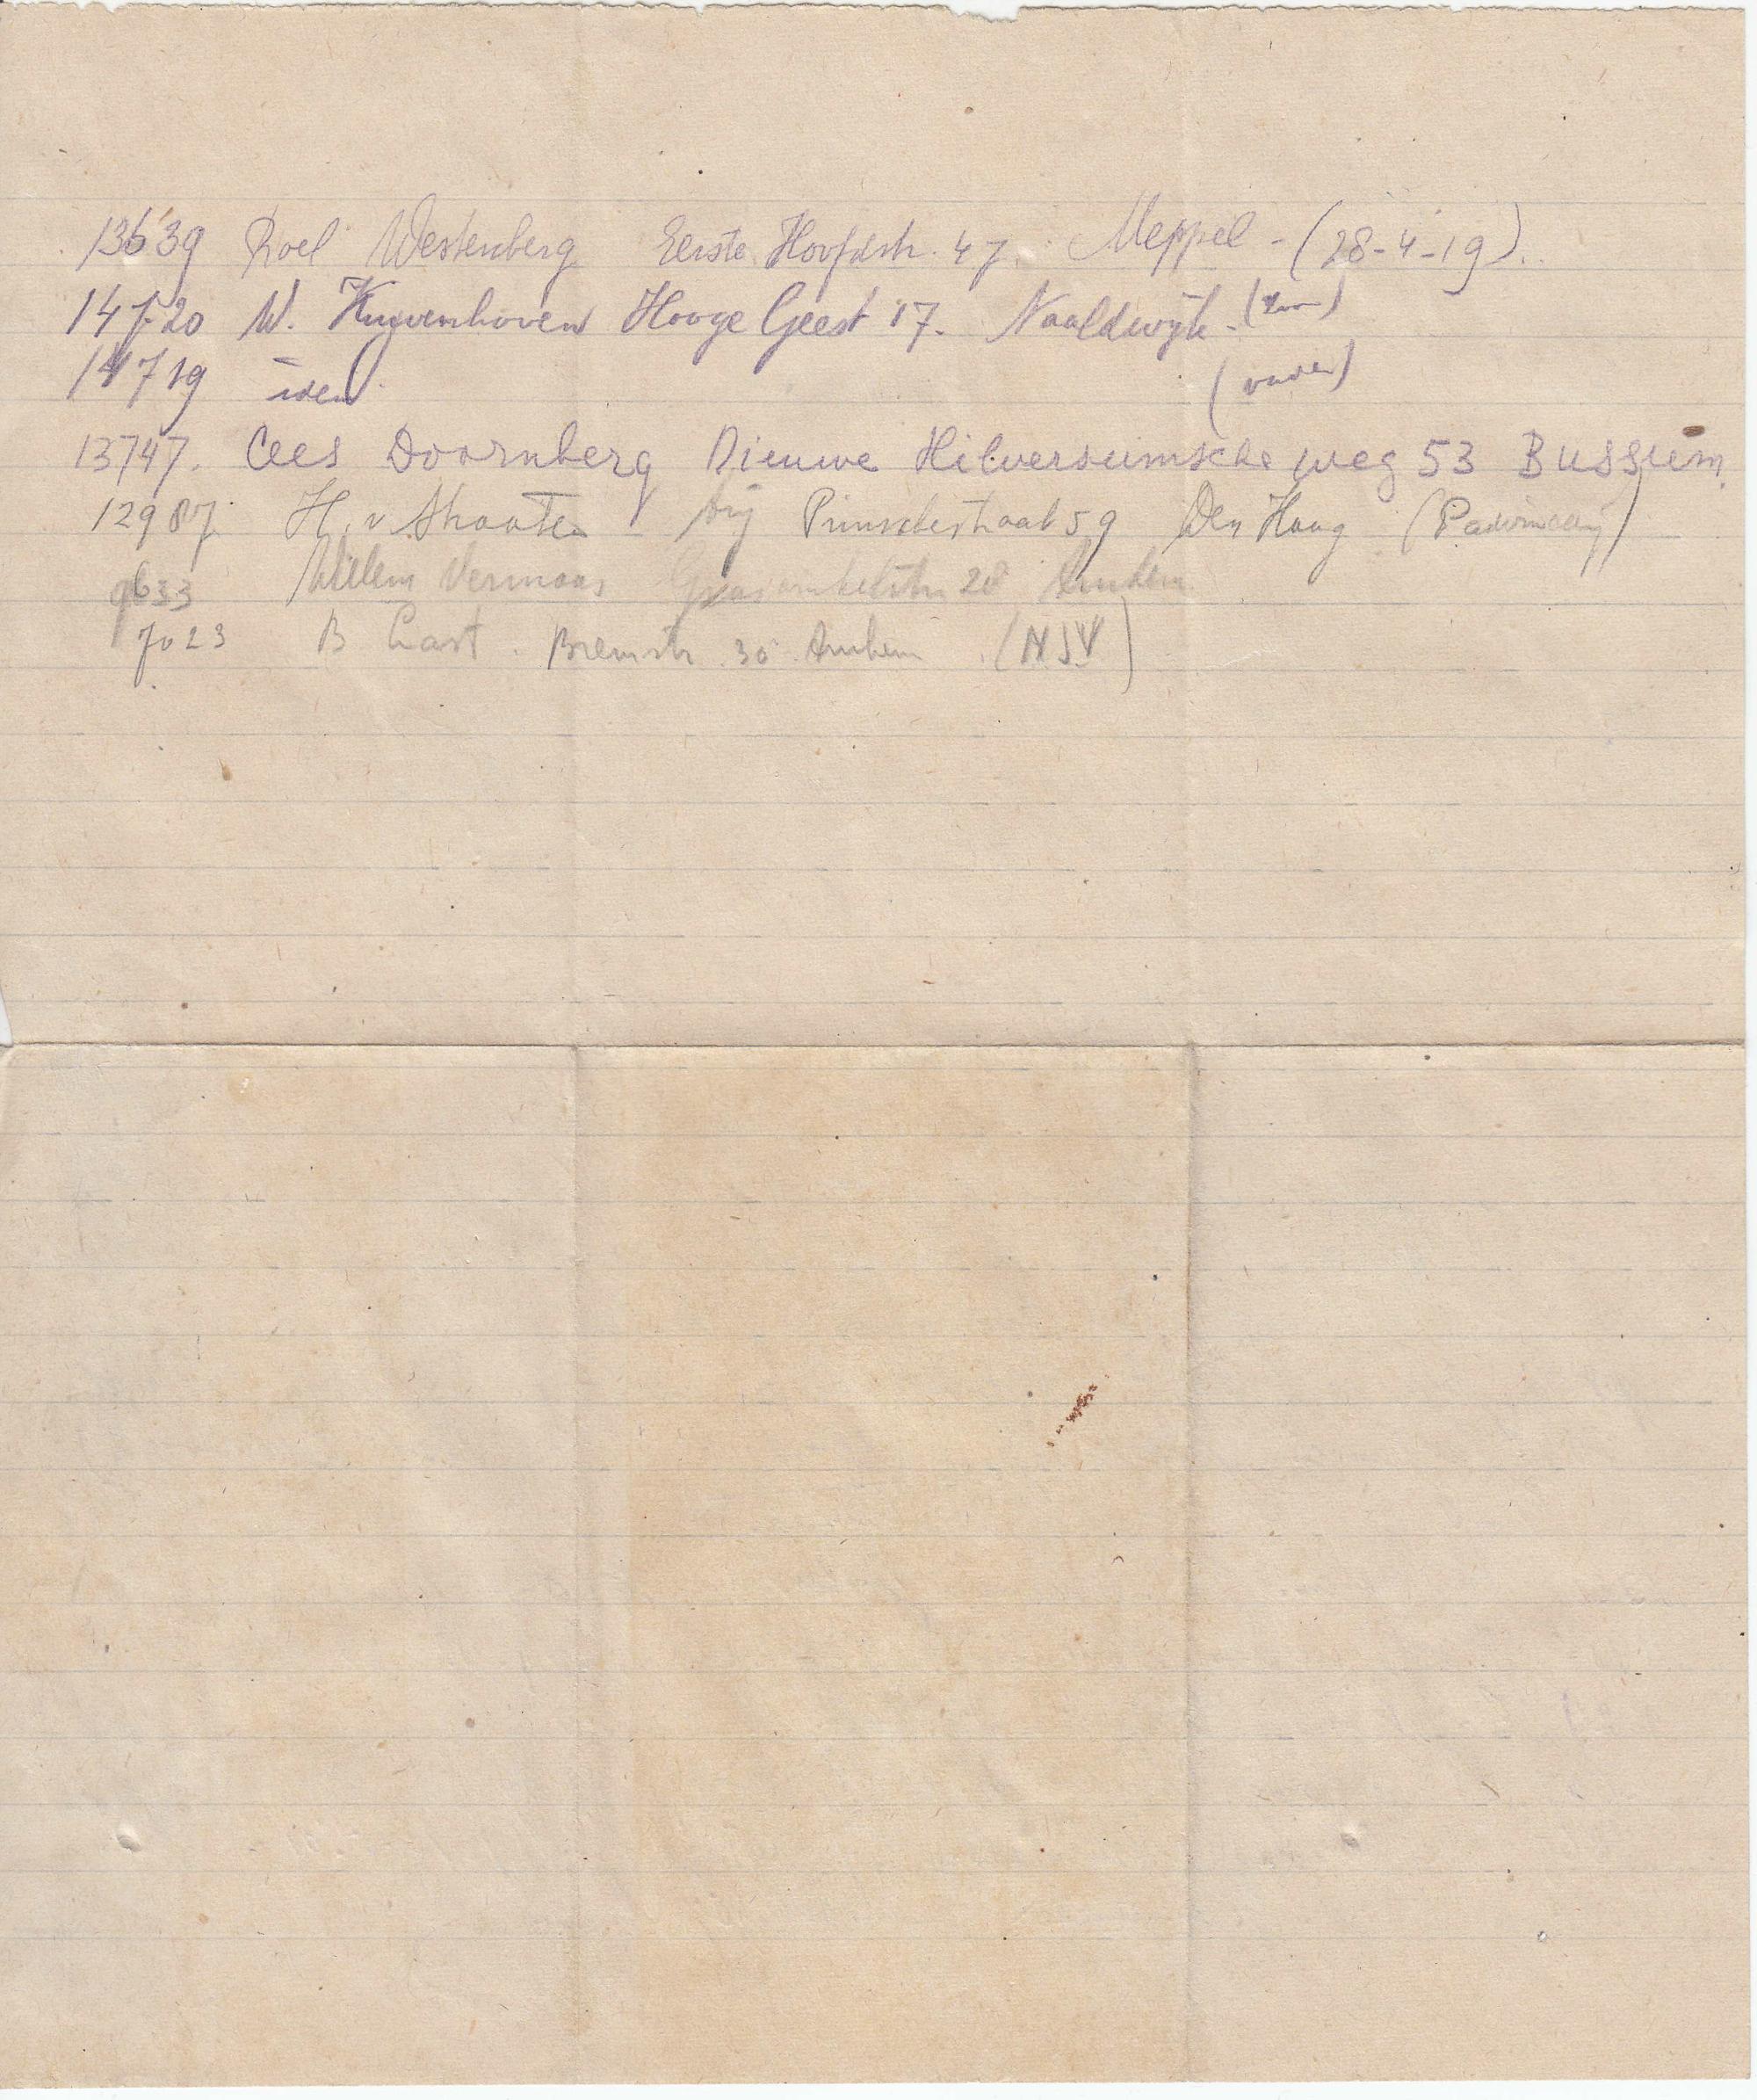 13639 Roel Westenberg Eerste Hoofdstr. 47. Meppel - (28-4-19).
14720 W. Kuyvenhoven Hooge Geest 17. Naaldwijk - (zoon)
14719 idem. (vader)
13747. Cees Doornberg Nieuwe Hilversumsche weg 53 Bussum.
12987 H. v Straaten Prinsestraat 59 Den Haag
9633 Willem Vermaas 28 Arnhem
7023 B Bremstr. 30 Arnhem